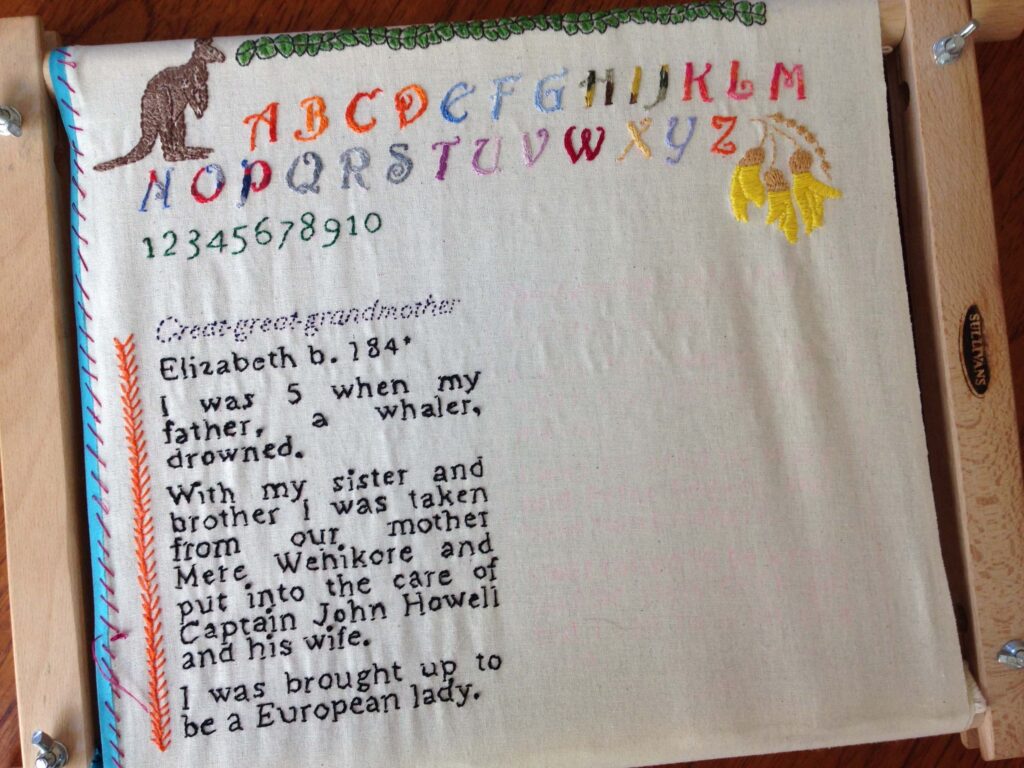 ABCDEFGHIJKLM
NOPQRSTUVWXYZ
12345678910
Great-great-grandmother
Elizabeth b. 184'
I was 5 when my
father, a whaler,
drowned.
With my sister and
brother I was taken
from our mother
Mere Wehikore and
put into the care of
Captain John Howell
and his wife.
I was brought up to
be a European lady.
SULLIVANS